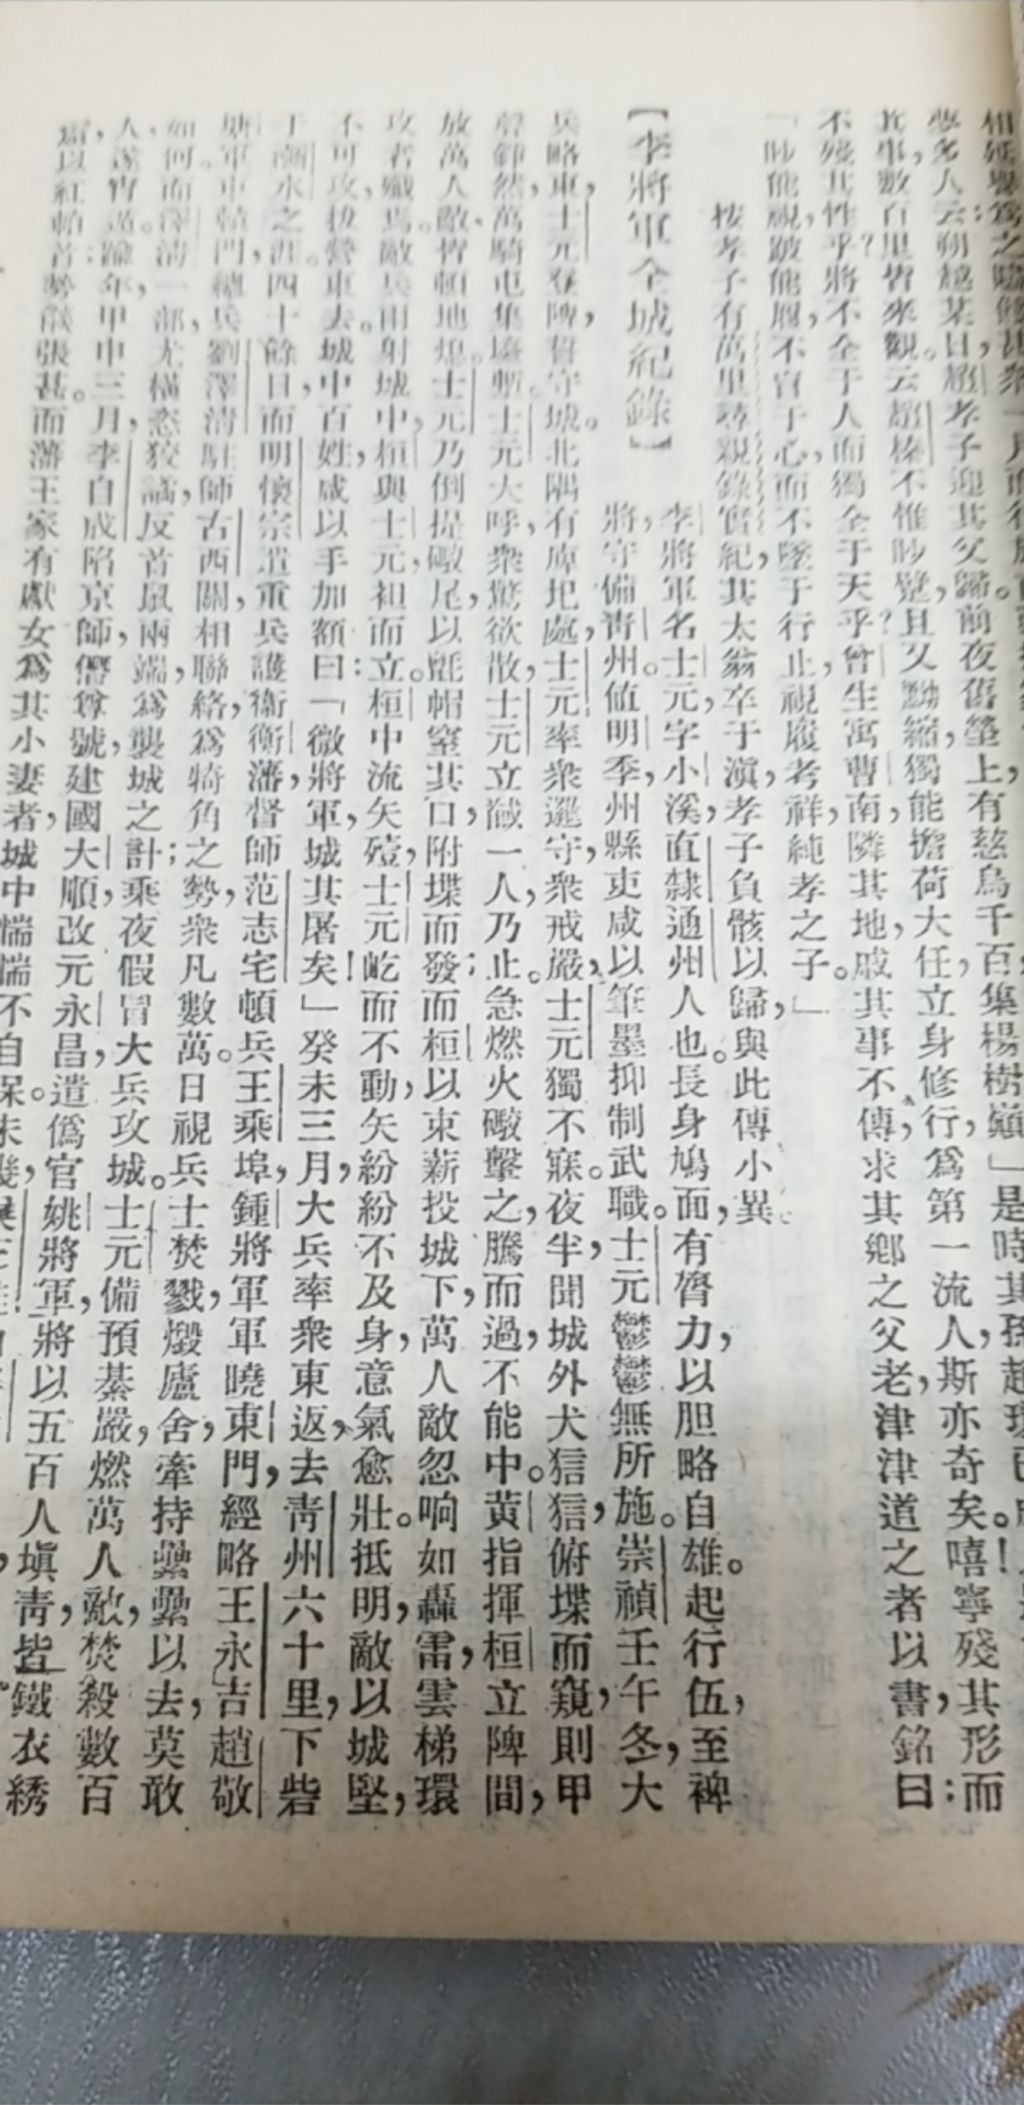 夢多人云朔越某日趙孝子迎其父歸前夜舊塋上有慈烏千百集楊樹巔」是時其孫趙
其事數百里皆來觀。云趙榛不惟眇躄且又黝縮，獨能擔荷大任，立身修行，爲第一流人，斯亦奇矣。嘻！寧殘其形而
不殘其性乎？將不全于人而獨全于天乎？曾生寓曹南，隣其地，戚其事不傳，求其鄉之父老，津津道之者以書，銘曰：
「眇能視，跛能履，不盲于心，而不墜于行止，視履考祥，純孝之子。」
按孝子有萬里尋親錄實紀，其太翁卒于滇，孝子負骸以歸，與此傳小異。
【李將軍全城紀錄】
李將軍名士元，字小溪，直隸通州人也。長身鳩面，有膂力，以胆略自雄。起行伍，至裨
將，守備青州。値明季，州縣吏咸以筆墨抑制武職。士元鬱鬱無所施。崇禎壬午冬，大
兵略東，士元登陴，誓守城。北隅有庳圯處，士元率衆邏守，衆戒嚴，士元獨不寐。夜半，聞城外犬狺狺，俯堞而窺，則甲
聲錚然，萬騎屯集壕塹。士元大呼，衆驚欲散，士元立馘一人，乃止。急燃火礮擊之，騰而過，不能中。黄指揮桓立陴間，
放萬人敵，皆頓地熄。士元乃倒提礮尾，以氈帽窒其口，附堞而發；而桓以束薪投城下，萬人敵忽响如轟雷，雲梯環
攻者殲焉。敵兵雨射城中，桓與士元，袒而立。桓中流矢，殪，士元屹而不動，矢紛紛不及身，意氣愈壯。抵明，敵以城堅，
不可攻，拔營東去。城中百姓，咸以手加額曰：「微將軍，城其屠矣！」癸未三月，大兵率衆東返，去青州六十里，下砦
于瀰水之涯。四十餘日，而明懷宗遣重兵護衞衡藩，督師范志宅頓兵王乘埠，鍾將軍軍曉東門，經略王永吉趙敬
塘軍車轅門，總兵劉澤清駐師古西關，相聯絡，爲犄角之勢，衆凡數萬。日視兵士焚戮，燬廬舍，牽持纍纍以去，莫敢
如何。而澤清一部，尤橫恣狡譎，反首鼠兩端，爲襲城之計；乘夜假冒大兵攻城。士元備預綦嚴，燃萬人敵，焚殺數百
人，遂宵遁。踰年，甲申三月，李自成陷京師，僭尊號，建國大順，改元永昌，遣僞官姚將軍，將以五百人塡青，皆鐵衣綉
以紅帕首；勢燄張甚。而藩王家有獻女爲其小妻者，城中惴惴不自保。未幾，